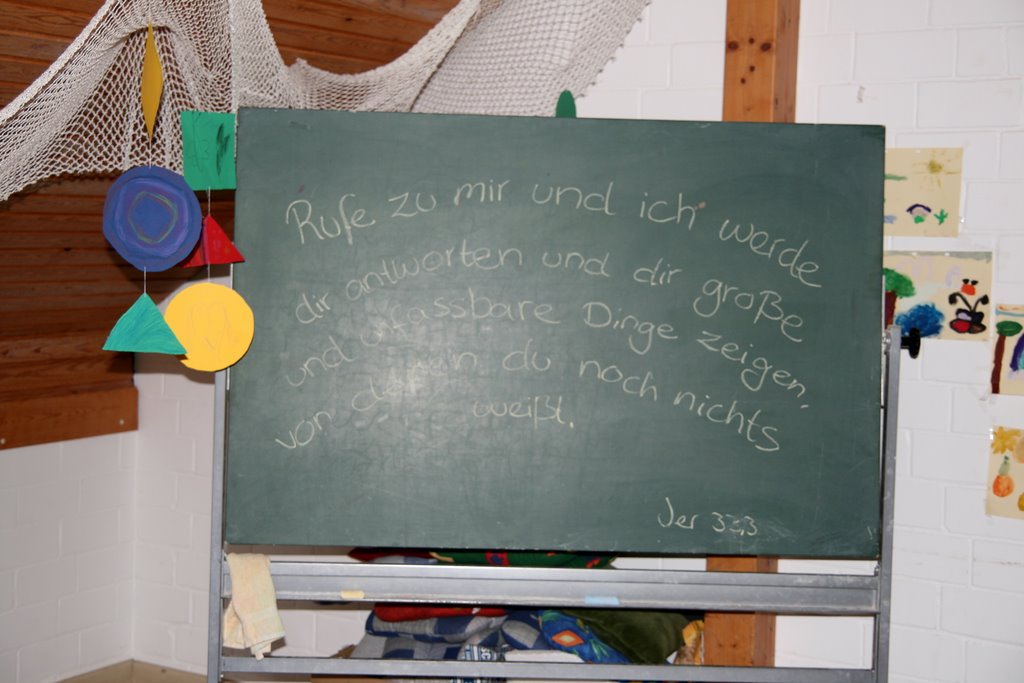 Rufe zu mir und ich werde
dir antworten und dir große
und unfassbare Dinge zeigen,
von denen du noch nichts
weißt.
Jer 33,3